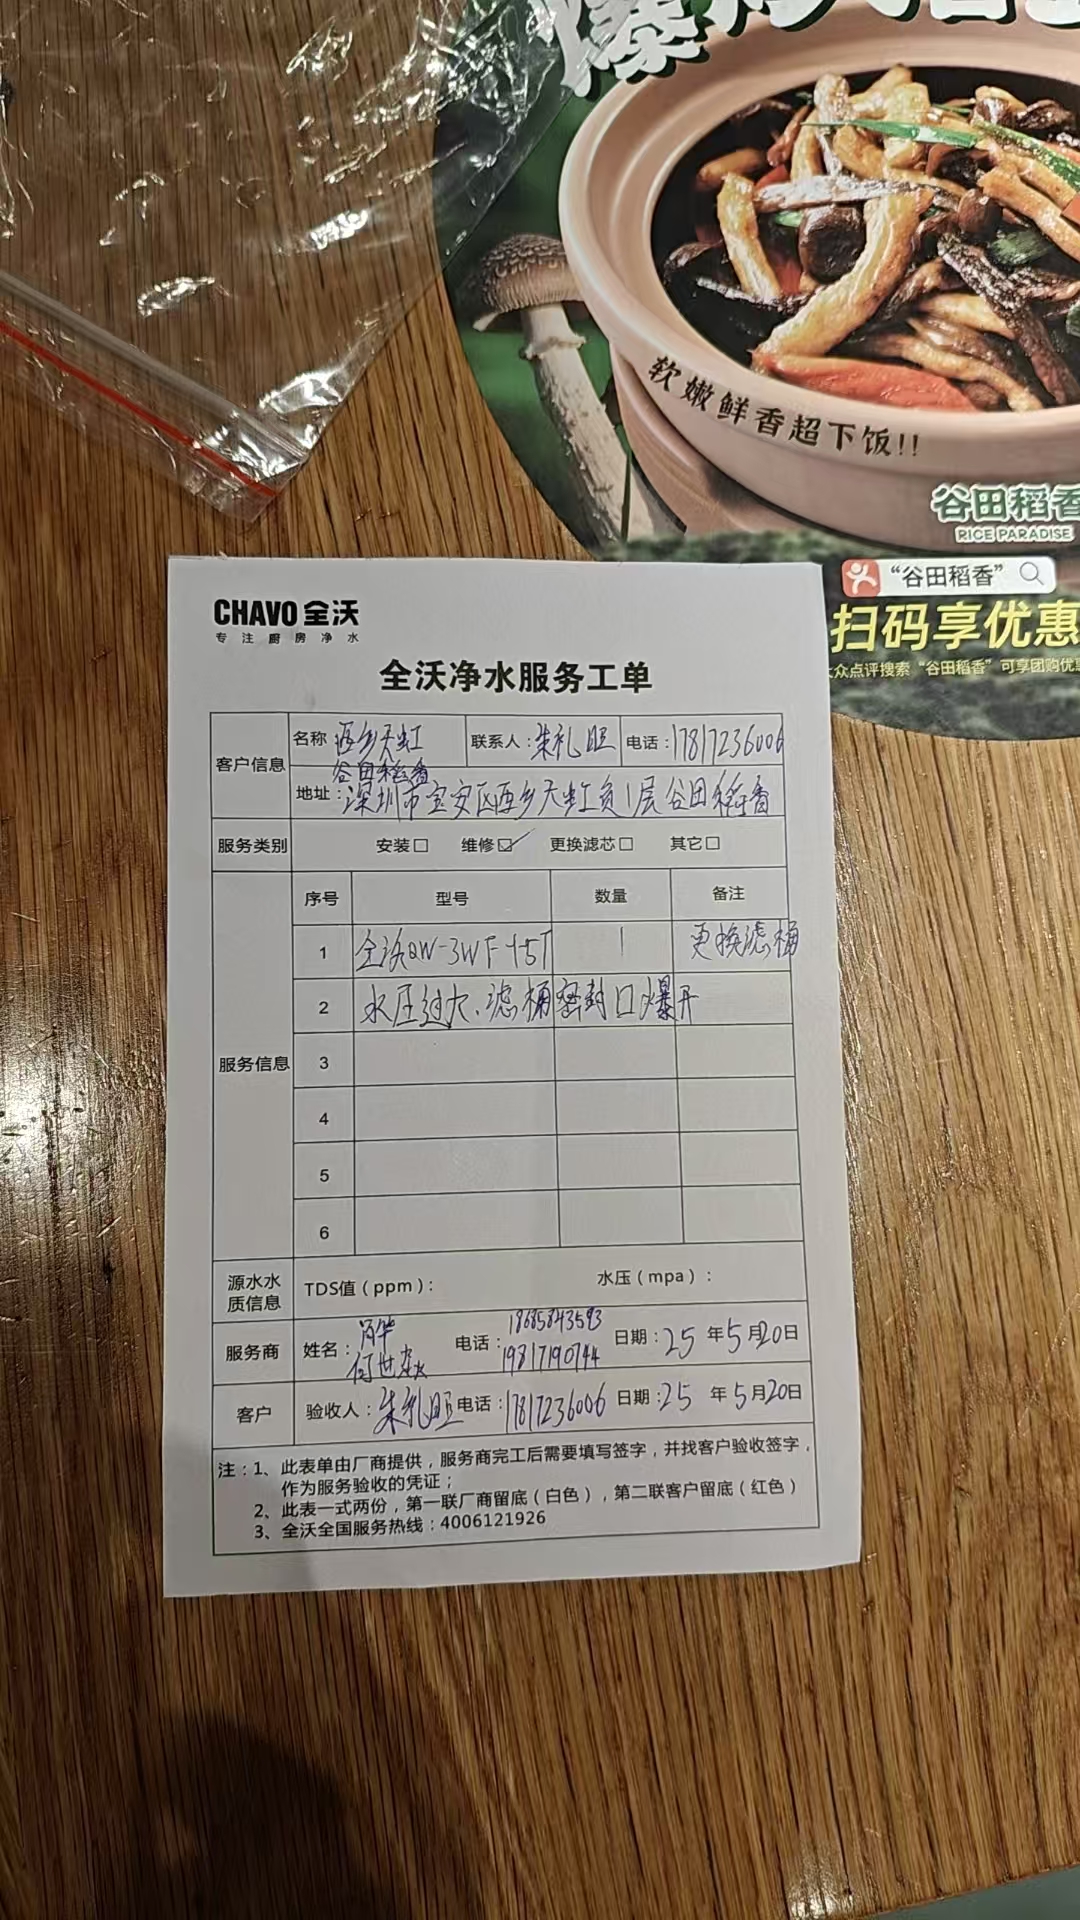 软嫩鲜香超下饭!!
谷田稻香
RICE PARADISE
“谷田稻香”
扫码享优惠
大众点评搜索“谷田稻香”可享团购优惠
CHAVO 全沃
专注厨房净水
全沃净水服务工单
客户信息 名称 西乡天虹 谷田稻香 联系人：朱礼旺 电话：17817236006
地址：深圳市宝安区西乡天虹负1层谷田稻香
服务类别 安装□ 维修☑ 更换滤芯□ 其它□
服务信息 序号 型号 数量 备注
1 全沃QW-3WF-15T 1 更换滤桶
2 水压过大、滤桶密封口爆开
3
4
5
6
源水水质信息 TDS值（ppm）： 水压（mpa）：
服务商 姓名：肖华 电话：18685843593 19817190744 日期：25年5月20日
客户 验收人：朱礼旺 电话：17817236006 日期：25年5月20日
注：1、此表单由厂商提供，服务商完工后需要填写签字，并找客户验收签字，
作为服务验收的凭证；
2、此表一式两份，第一联厂商留底（白色），第二联客户留底（红色）
3、全沃全国服务热线：4006121926